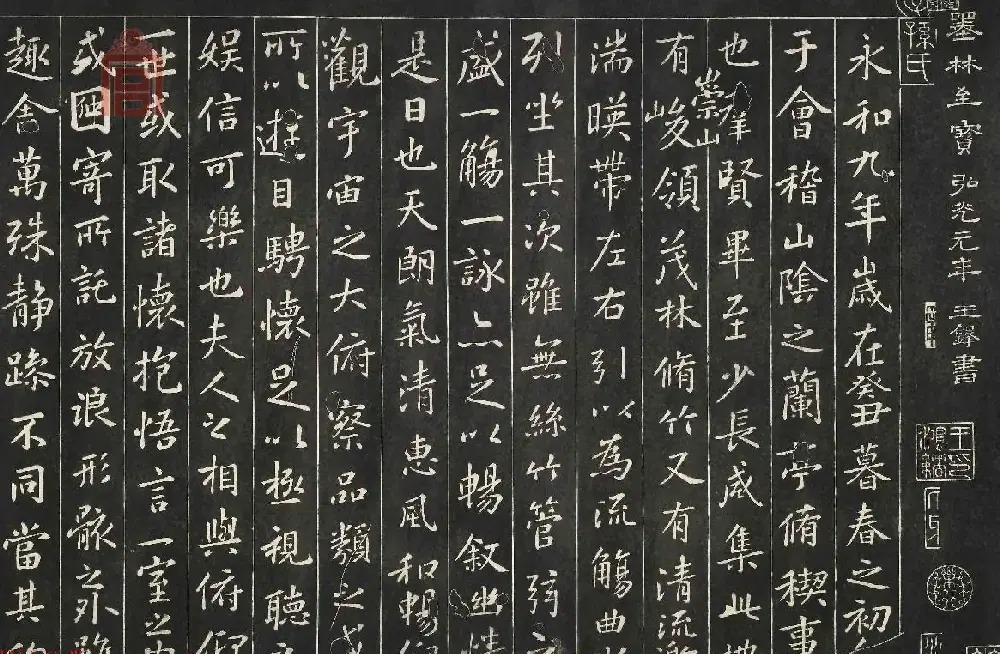 墨林至寶 弘光元年 王鐸書
孫氏
永和九年歲在癸丑暮春之初
于會稽山陰之蘭亭脩稧事
也羣賢畢至少長咸集此地
有崇山峻領茂林脩竹又有清流激
湍暎帶左右引以為流觴曲
列坐其次雖無絲竹管弦之
盛一觴一詠亦足以暢叙幽情
是日也天朗氣清惠風和暢仰
觀宇宙之大俯察品類之盛
所以遊目騁懷足以極視聽之
娛信可樂也夫人之相與俯仰
一世或取諸懷抱悟言一室之
或因寄所託放浪形骸之外雖
趣舍萬殊静躁不同當其